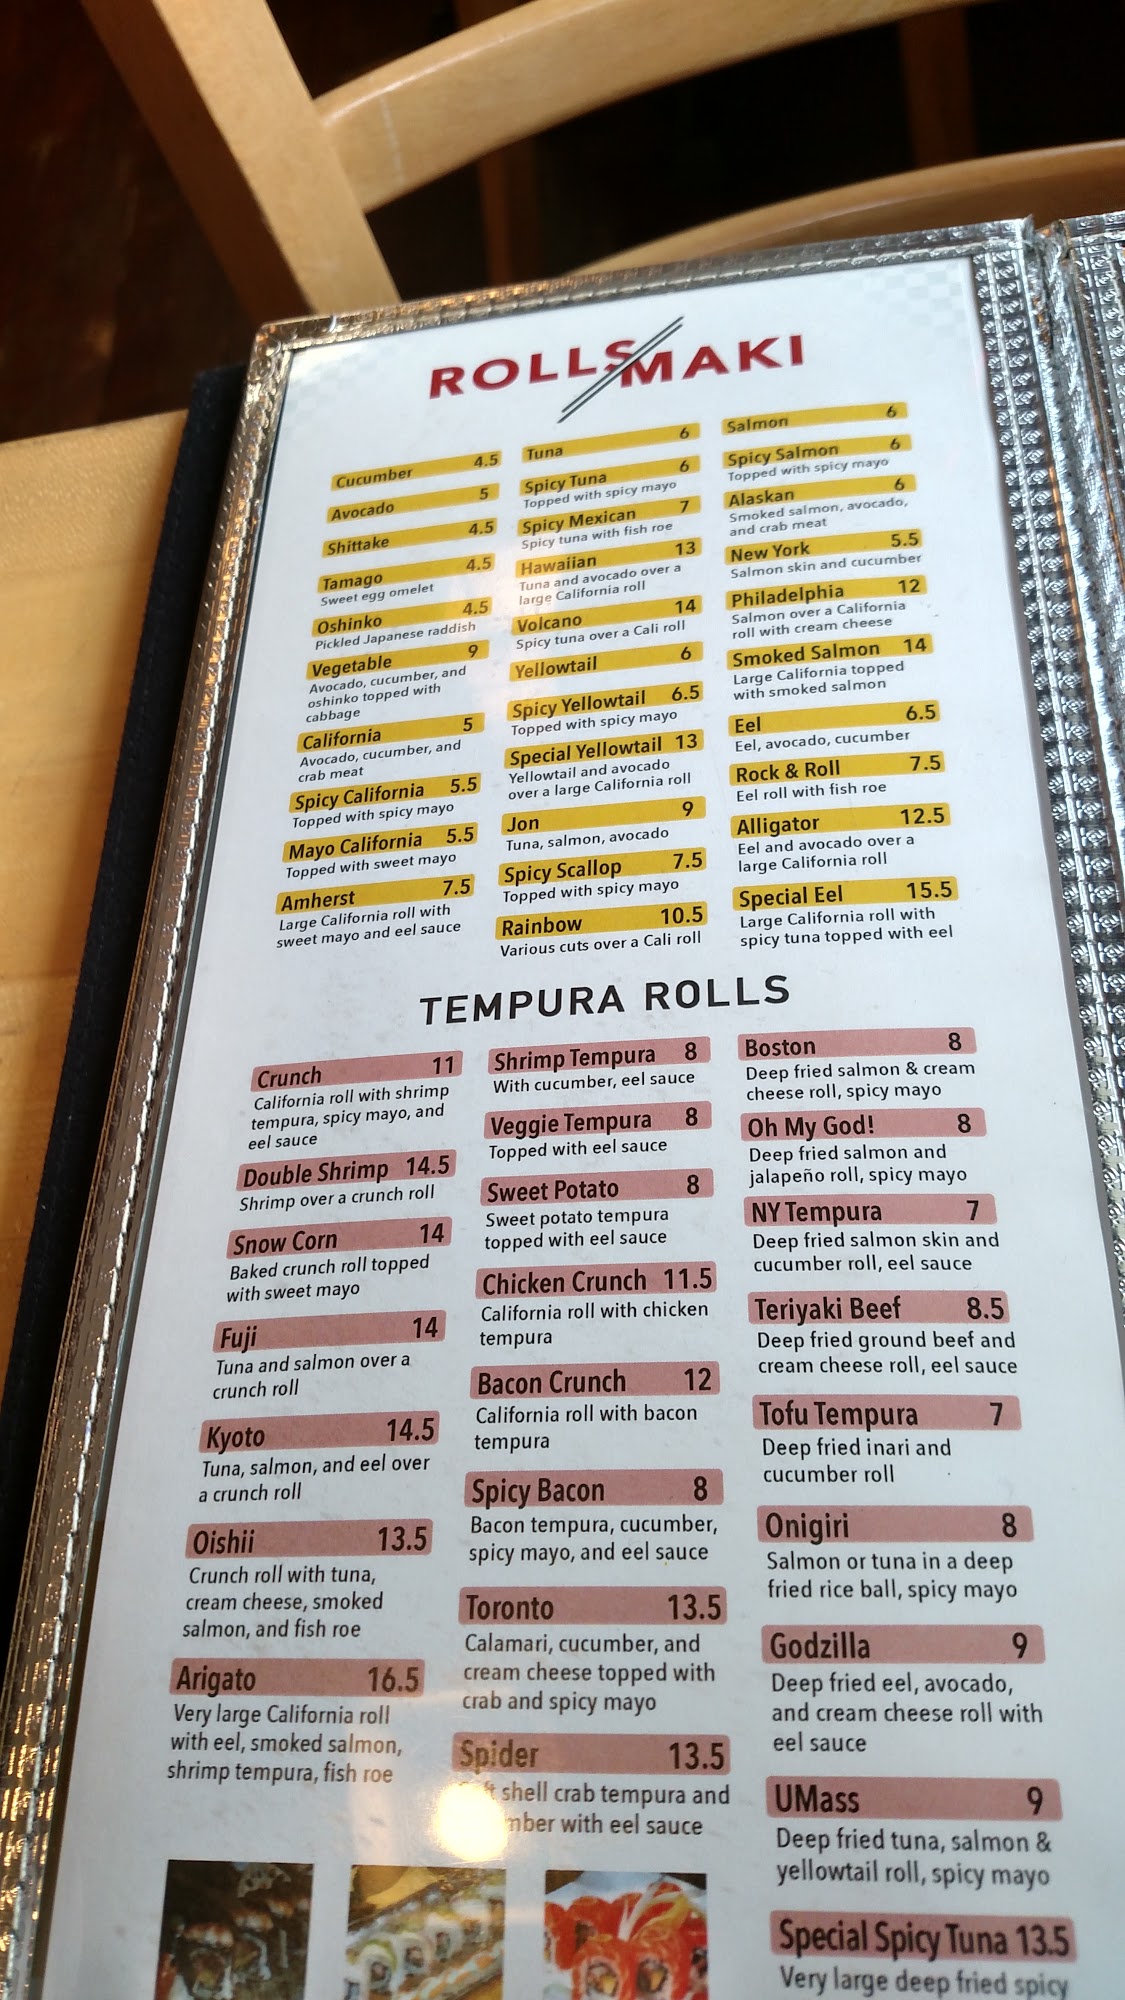 ROLLS MAKI
Cucumber 4.5
Avocado 5
Shittake 4.5
Tamago 4.5
Sweet egg omelet
Oshinko 4.5
Pickled Japanese raddish
Vegetable 9
Avocado, cucumber, and
oshinko topped with
cabbage
California 5
Avocado, cucumber, and
crab meat
Spicy California 5.5
Topped with spicy mayo
Mayo California 5.5
Topped with sweet mayo
Amherst 7.5
Large California roll with
sweet mayo and eel sauce
Tuna 6
Spicy Tuna 6
Topped with spicy mayo
Spicy Mexican 7
Spicy tuna with fish roe
Hawaiian 13
Tuna and avocado over a
large California roll
Volcano 14
Spicy tuna over a Cali roll
Yellowtail 6
Spicy Yellowtail 6.5
Topped with spicy mayo
Special Yellowtail 13
Yellowtail and avocado
over a large California roll
Jon 9
Tuna, salmon, avocado
Spicy Scallop 7.5
Topped with spicy mayo
Rainbow 10.5
Various cuts over a Cali roll
Salmon 6
Spicy Salmon 6
Topped with spicy mayo
Alaskan 6
Smoked salmon, avocado,
and crab meat
New York 5.5
Salmon skin and cucumber
Philadelphia 12
Salmon over a California
roll with cream cheese
Smoked Salmon 14
Large California topped
with smoked salmon
Eel 6.5
Eel, avocado, cucumber
Rock & Roll 7.5
Eel roll with fish roe
Alligator 12.5
Eel and avocado over a
large California roll
Special Eel 15.5
Large California roll with
spicy tuna topped with eel
TEMPURA ROLLS
Crunch 11
California roll with shrimp
tempura, spicy mayo, and
eel sauce
Double Shrimp 14.5
Shrimp over a crunch roll
Snow Corn 14
Baked crunch roll topped
with sweet mayo
Fuji 14
Tuna and salmon over a
crunch roll
Kyoto 14.5
Tuna, salmon, and eel over
a crunch roll
Oishii 13.5
Crunch roll with tuna,
cream cheese, smoked
salmon, and fish roe
Arigato 16.5
Very large California roll
with eel, smoked salmon,
shrimp tempura, fish roe
Shrimp Tempura 8
With cucumber, eel sauce
Veggie Tempura 8
Topped with eel sauce
Sweet Potato 8
Sweet potato tempura
topped with eel sauce
Chicken Crunch 11.5
California roll with chicken
tempura
Bacon Crunch 12
California roll with bacon
tempura
Spicy Bacon 8
Bacon tempura, cucumber,
spicy mayo, and eel sauce
Toronto 13.5
Calamari, cucumber, and
cream cheese topped with
crab and spicy mayo
Spider 13.5
shell crab tempura and
with eel sauce
Boston 8
Deep fried salmon & cream
cheese roll, spicy mayo
Oh My God! 8
Deep fried salmon and
jalapeño roll, spicy mayo
NY Tempura 7
Deep fried salmon skin and
cucumber roll, eel sauce
Teriyaki Beef 8.5
Deep fried ground beef and
cream cheese roll, eel sauce
Tofu Tempura 7
Deep fried inari and
cucumber roll
Onigiri 8
Salmon or tuna in a deep
fried rice ball, spicy mayo
Godzilla 9
Deep fried eel, avocado,
and cream cheese roll with
eel sauce
UMass 9
Deep fried tuna, salmon &
yellowtail roll, spicy mayo
Special Spicy Tuna 13.5
Very large deep fried spicy